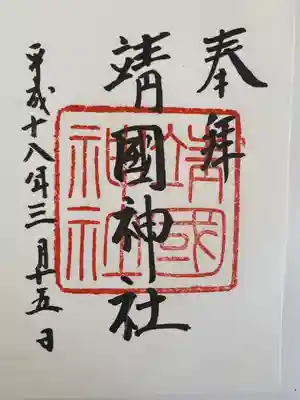 奉拝
靖國神社
靖國神社
平成十八年三月五日